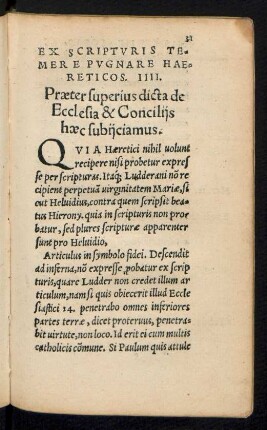 31
EX SCRIPTVRIS TE-
MERE PVGNARE HAE-
RETICOS. IIII.
Præter superius dicta de
Ecclesia & Concilijs
hæc subijciamus.
QVIA Hæretici nihil uolunt
recipere nisi probetur expres
se per scripturas. Itaq; Ludderani nõ re
cipient perpetuã uirginitatem Mariæ, si
cut Heluidius, contra quem scripsit bea
tus Hierony. quia in scripturis non pro
batur, sed plures scripturæ apparenter
sunt pro Heluidio,
Articulus in symbolo fidei. Descendit
ad inferna, nõ expresse ꝓbatur ex scrip
turis, quare Ludder non credet illum ar
ticulum, nam si quis obiecerit illud Eccle
siastici 24. penetrabo omnes inferiores
partes terræ, dicet proteruus, penetra-
bit uirtute, non loco. Id erit ei cum multis
catholicis cõmune. Si Paulum quis attule